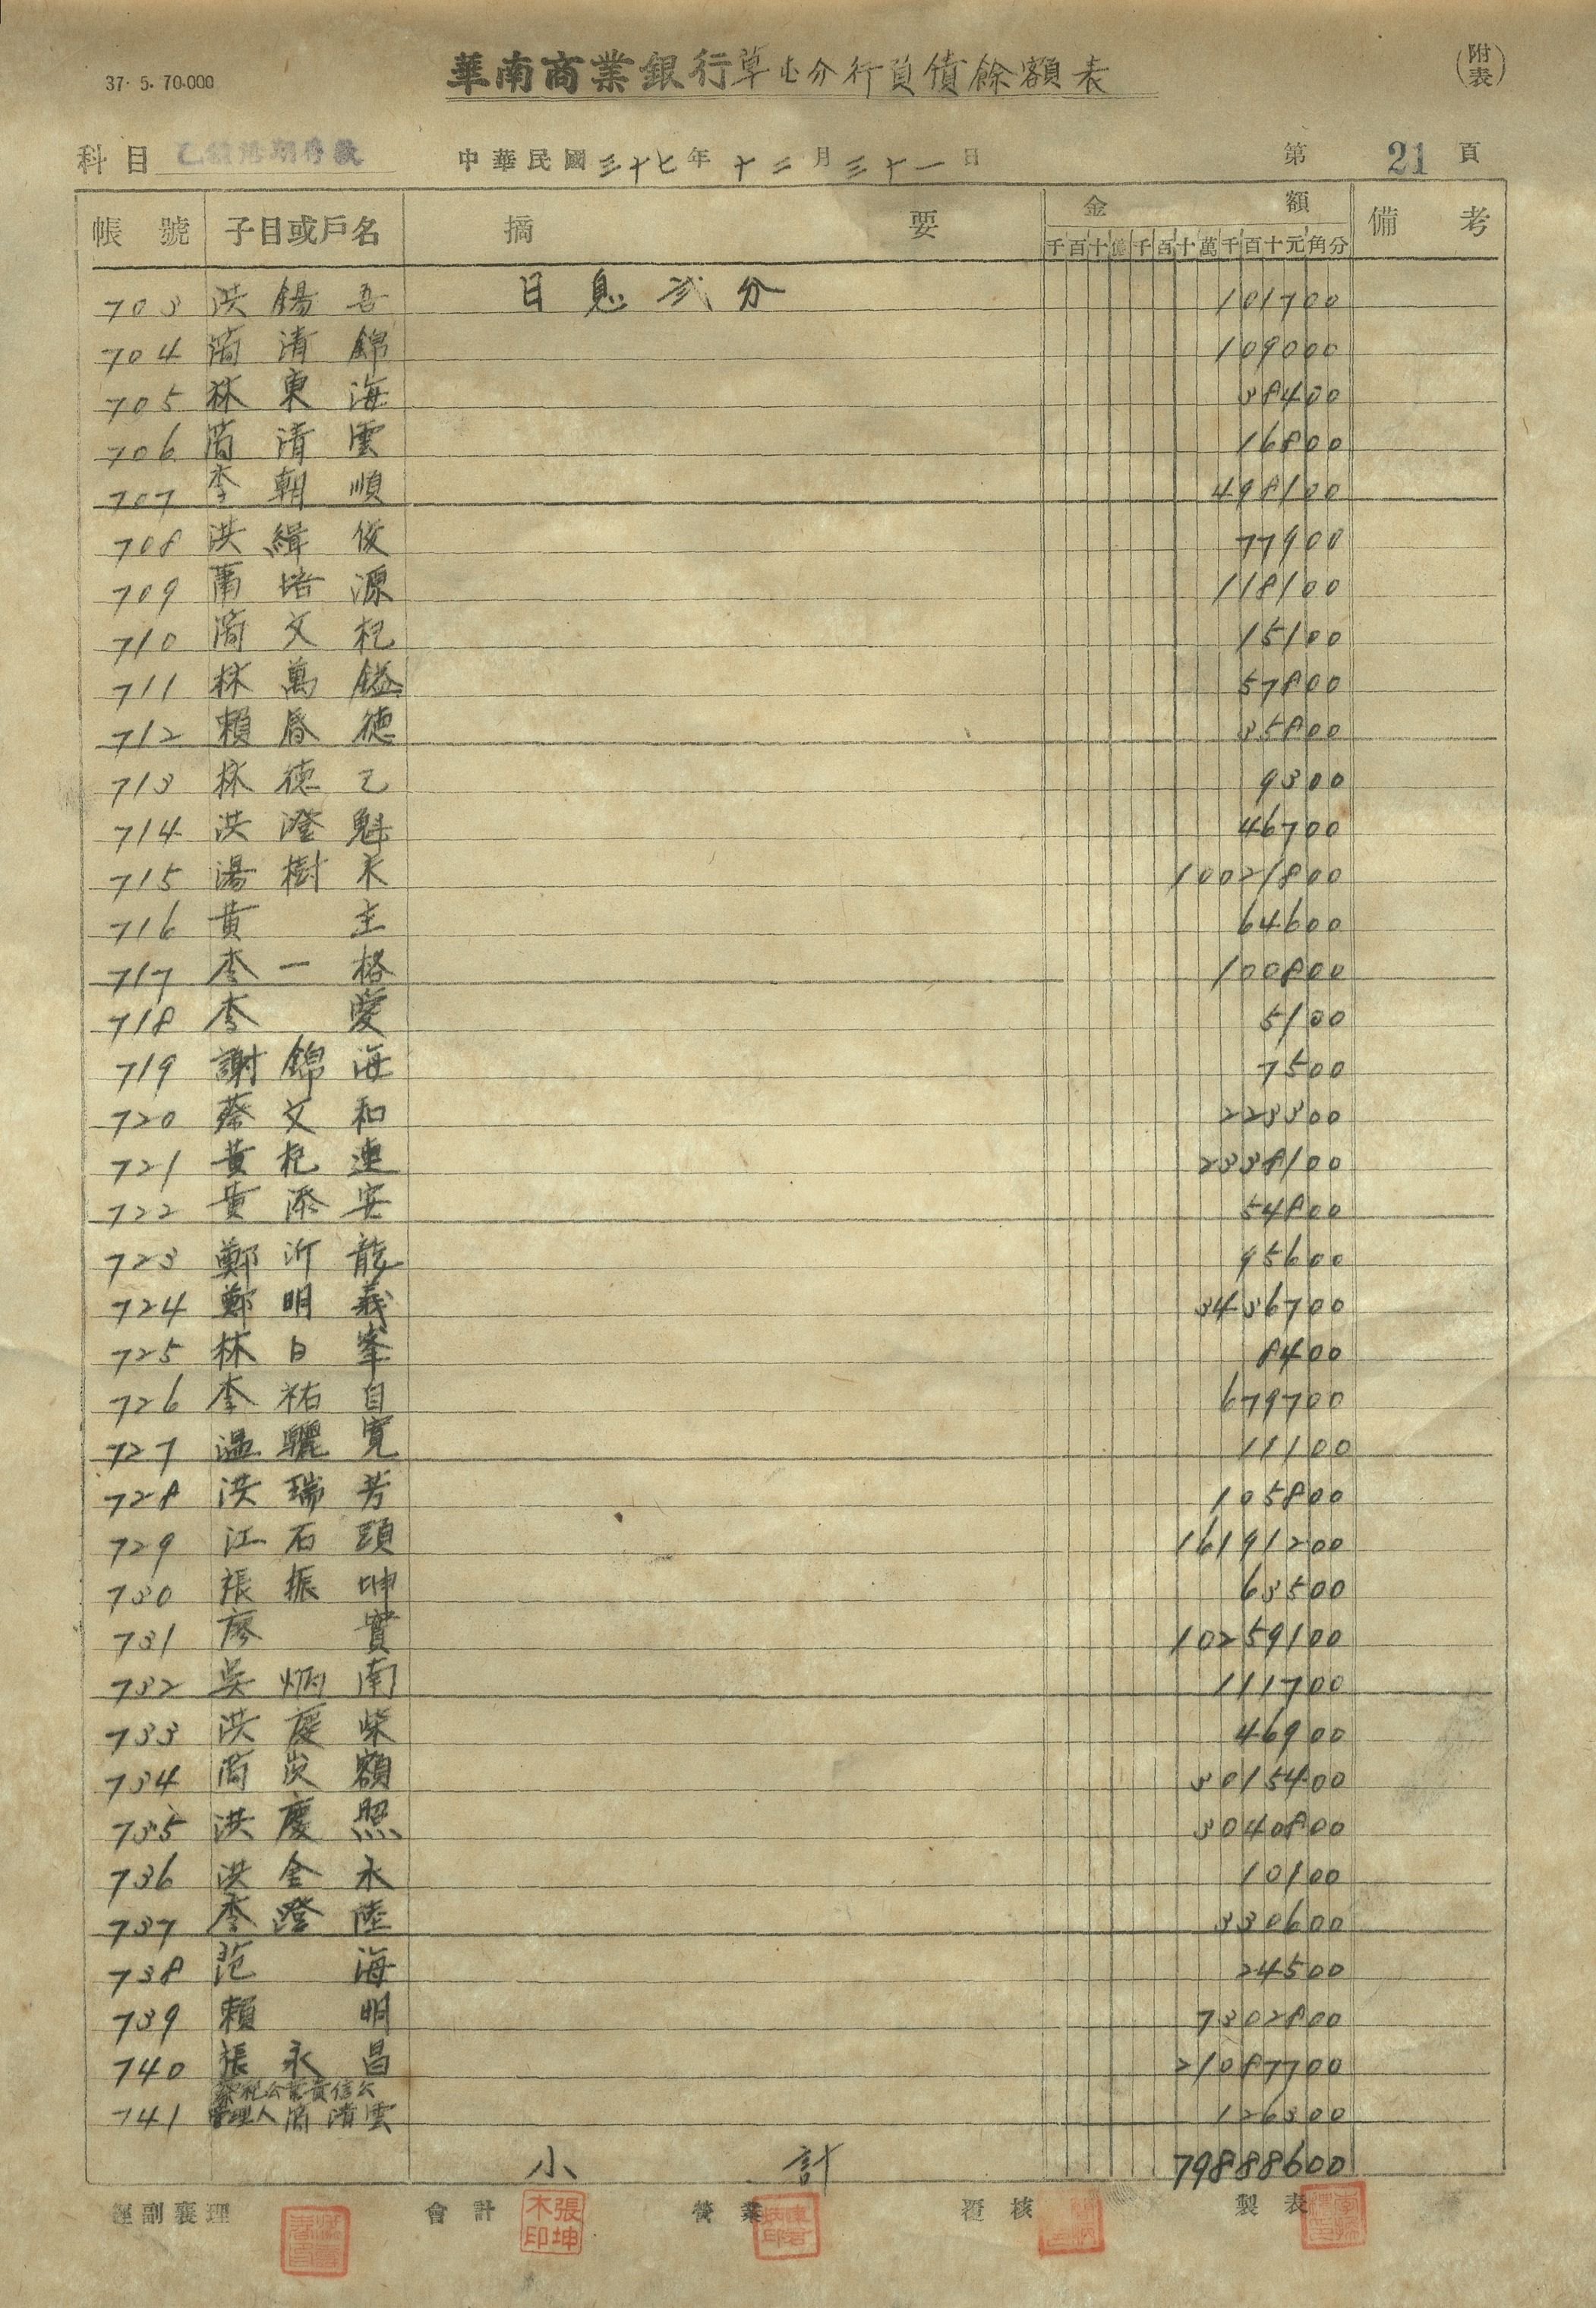 37. 5. 70.000
華南商業銀行草屯分行負債餘額表
(附表)
科目 乙種活期存款 中華民國三十七年十二月三十一日 第21頁
帳號 子目或戶名 摘要 金額 備考
千百十億千百十萬千百十元角分
703 洪錫吾 日息弐分 101700
704 簡清錦 109000
705 林東海 38400
706 簡清雲 16800
707 李朝順 498100
708 洪緝俊 77900
709 培源 118100
710 簡文杞 15100
711 林萬鎰 57800
712 賴 德 35800
713 林德乙 9300
714 洪澄魁 46700
715 湯樹木 10021800
716 黃主 64600
717 李一格 100800
718 李愛 5100
719 謝錦海 7500
720 蔡文和 223300
721 黃杞連 2338100
722 黃添安 54800
723 鄭沂龍 95600
724 鄭明義 3436700
725 林日峯 8400
726 李祐自 679700
727 溫驪寬 11100
728 洪瑞芳 105800
729 江石頭 16191200
730 張振坤 63500
731 廖寶 10259100
732 吳炳南 111700
733 洪慶柴 46900
734 簡炭額 3015400
735 洪慶照 3040800
736 洪金水 10100
737 李澄陸 330600
738 范海 24500
739 賴明 7302800
740 張永昌 21087700
祭祀公業黃信公
741 管理人簡清雲 126300
小計 79888600
經副襄理 會計 營業 覆核 製表
張坤木印